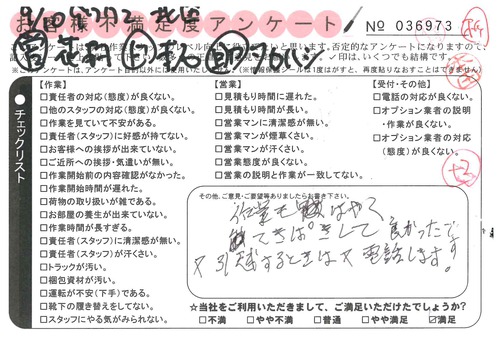 お客様不満足度アンケート
№ 036973
✓印は、いくつでも結構です。
※このアンケートは、アンケート目的以外には使用いたしません。（※情報保護シールは1度はがすと、再度貼りなおすことはできません）
チェックリスト
【作業】
□責任者の対応(態度)が良くない。
□他のスタッフの対応(態度)が良くない。
□作業を見ていて不安がある。
□責任者(スタッフ)に好感が持てない。
□お客様への挨拶が出来ていない。
□ご近所への挨拶・気遣いが無い。
□作業開始前の内容確認がなかった。
□作業開始時間が遅れた。
□荷物の取り扱いが雑である。
□お部屋の養生が出来ていない。
□作業時間が長すぎる。
□責任者(スタッフ)に清潔感が無い。
□責任者(スタッフ)が汗くさい。
□トラックが汚い。
□梱包資材が汚い。
□運転が不安(下手)である。
□靴下の履き替えをしてない。
□スタッフにやる気がみられない。
【営業】
□見積もり時間に遅れた。
□見積もり時間が長い。
□営業マンに清潔感が無い。
□営業マンが煙草くさい。
□営業マンが汗くさい。
□営業態度が良くない。
□営業の説明と作業が一致してない。
【受付・その他】
□電話の対応が良くない。
□オプション業者の説明
・作業が良くない。
□オプション業者の対応
(態度)が良くない。
その他、ご意見・ご要望等ありましたらお書き下さい。
作業も はやく
てきぱきして 良かったです
又引越するときは又 電話します。
☆当社をご利用いただきまして、ご満足いただけたでしょうか?
□不満 □やや不満 □普通 □やや満足 ☑満足